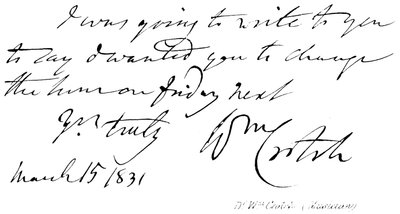 I was going to write to you
to say I wanted you to change
the hour on friday next
Yrs truly Wm Crotch
March 15 1831
Dr Wm Crotch (Musician)